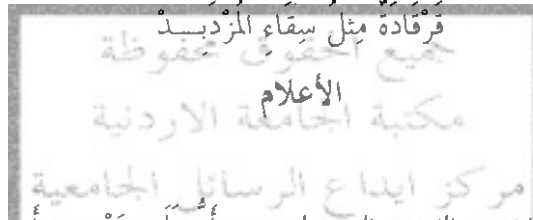 قَرْقَادَةٌ مِثْلُ سِقَاءِ المُزْدَبِــدْ
جميع الحقوق محفوظة
الأعلام
مكتبة الجامعة الاردنية
مركز ايداع الرسائل الجامعية